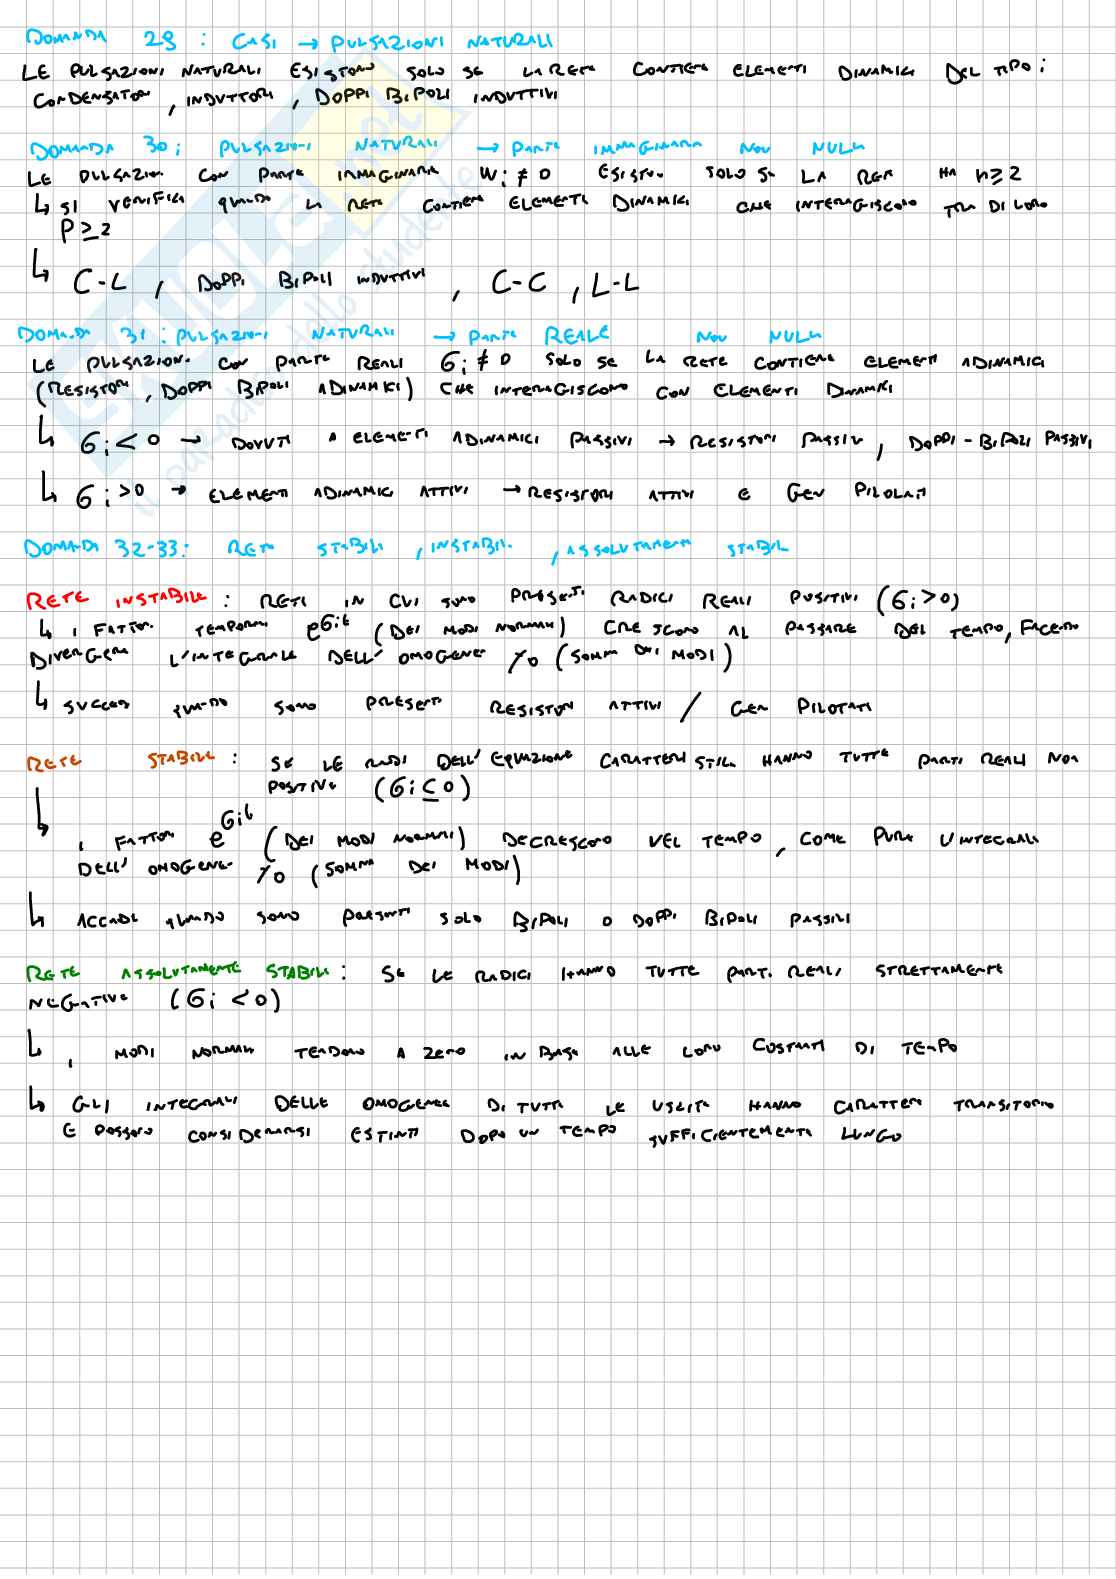 DOMANDA 29 : CASI → PULSAZIONI NATURALI
LE PULSAZIONI NATURALI ESISTONO SOLO SE LA RETE CONTIENE ELEMENTI DINAMICI DEL TIPO:
CONDENSATORI, INDUTTORI, DOPPI BIPOLI INDUTTIVI
DOMANDA 30: PULSAZIONI NATURALI → PARTE IMMAGINARIA NON NULLA
LE PULSAZIONI CON PARTE IMMAGINARIA Wi ≠ 0 ESISTONO SOLO SE LA RETE HA n≥2
↳ SI VERIFICA QUANDO LA RETE CONTIENE ELEMENTI DINAMICI CHE INTERAGISCONO TRA DI LORO
P≥2
↳ C-L , DOPPI BIPOLI INDUTTIVI , C-C , L-L
DOMANDA 31: PULSAZIONI NATURALI → PARTE REALE NON NULLA
LE PULSAZIONI CON PARTE REALE σi ≠ 0 SOLO SE LA RETE CONTIENE ELEMENTI ADINAMICI
(RESISTORI, DOPPI BIPOLI ADINAMICI) CHE INTERAGISCONO CON ELEMENTI DINAMICI
↳ σi < 0 → DOVUTI A ELEMENTI ADINAMICI PASSIVI → RESISTORI PASSIVI, DOPPI-BIPOLI PASSIVI
↳ σi > 0 → ELEMENTI ADINAMICI ATTIVI → RESISTORI ATTIVI E GEN PILOTATI
DOMANDA 32-33: RETI STABILI, INSTABILI, ASSOLUTAMENTE STABILI
RETE INSTABILE : RETI IN CUI SONO PRESENTI RADICI REALI POSITIVI (σi>0)
↳ I FATTORI TEMPORALI e^σit (DEI MODI NORMALI) CRESCONO AL PASSARE DEL TEMPO, FACENDO
DIVERGERE L'INTEGRALE DELL'OMOGENEA Yo (SOMMA DEI MODI)
↳ SUCCEDE QUANDO SONO PRESENTI RESISTORI ATTIVI / GEN PILOTATI
RETE STABILE : SE LE RADICI DELL'EQUAZIONE CARATTERISTICA HANNO TUTTE PARTI REALI NON
POSITIVE (σi ≤ 0)
↳ I FATTORI e^σit (DEI MODI NORMALI) DECRESCONO NEL TEMPO, COME PURE L'INTEGRALE
DELL'OMOGENEA Yo (SOMMA DEI MODI)
↳ ACCADE QUANDO SONO PRESENTI SOLO BIPOLI O DOPPI BIPOLI PASSIVI
RETE ASSOLUTAMENTE STABILE : SE LE RADICI HANNO TUTTE PARTI REALI STRETTAMENTE
NEGATIVE (σi < 0)
↳ I MODI NORMALI TENDONO A ZERO IN BASE ALLE LORO COSTANTI DI TEMPO
↳ GLI INTEGRALI DELLE OMOGENEE DI TUTTE LE USCITE HANNO CARATTERE TRANSITORIO
E POSSONO CONSIDERARSI ESTINTI DOPO UN TEMPO SUFFICIENTEMENTE LUNGO